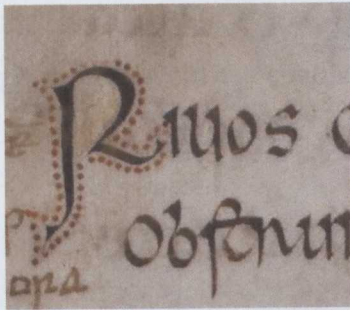 Riuos
obstrun
ora